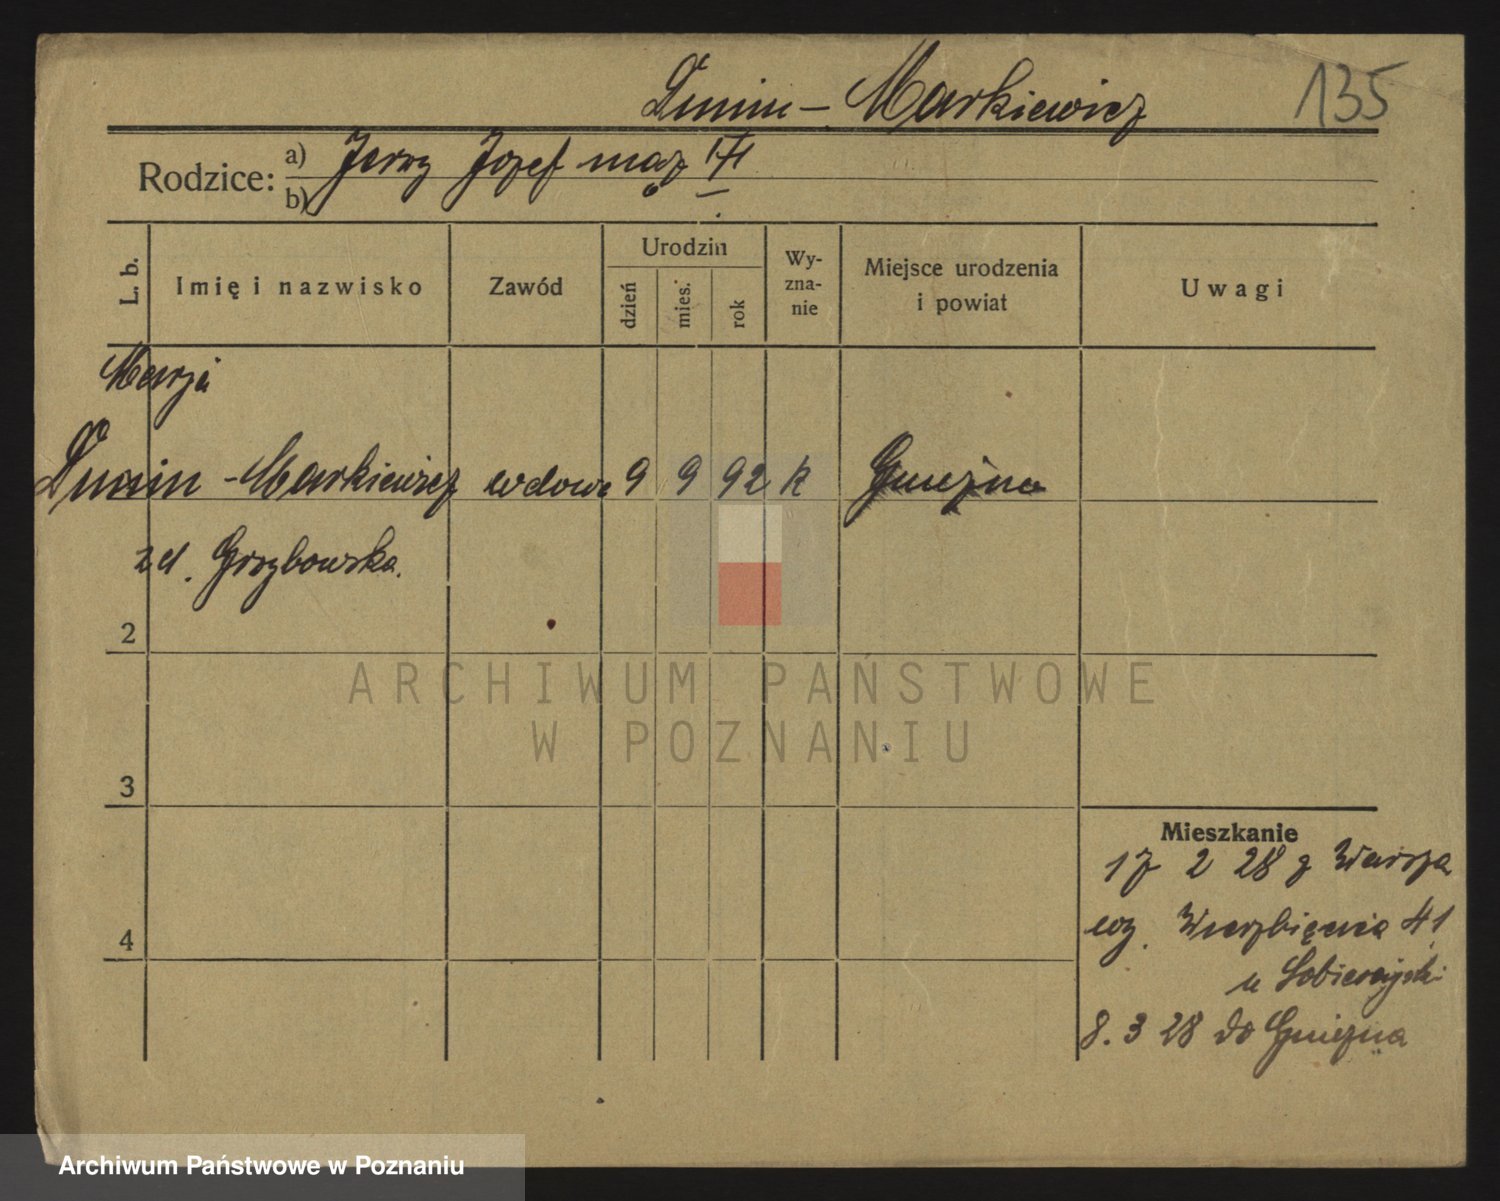 Dunin - Markiewicz 135
Rodzice: a) Jerzy Józef mąż
b)
L. b. Imię i nazwisko Zawód Urodzin Wy-zna-nie Miejsce urodzenia i powiat Uwagi
dzień mies. rok
Marja
Dunin - Markiewicz wdowa 9 9 92 k Gniezno
zd. Grzybowska.
2
3
4
Mieszkanie
17 2 28 z Warsza
wy. Wierzbięcice 41
u
8. 3 28 do Gniezna
ARCHIWUM PAŃSTWOWE
W POZNANIU
Archiwum Państwowe w Poznaniu